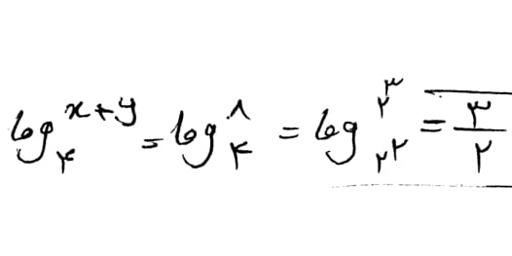 log₄^(x+y) = log_۴^۸ = log_(۲^۲)^(۲^۳) = ۳/۲